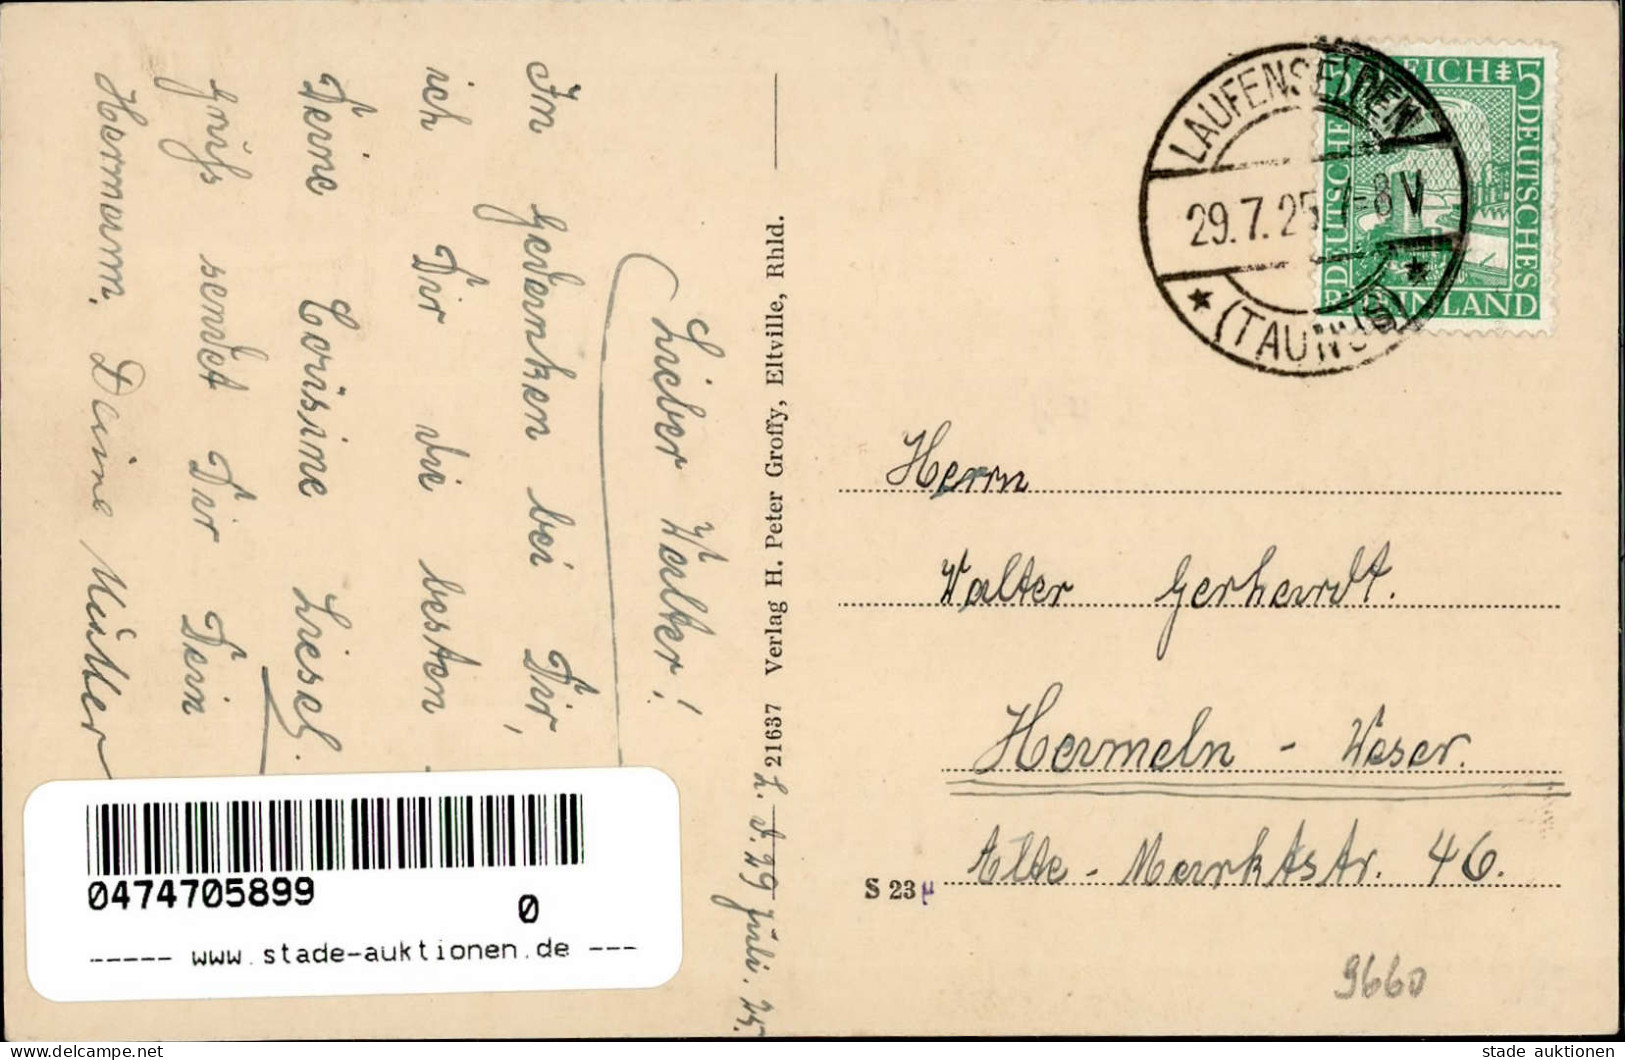 L. d. 29 Juli. 25.
Lieber Walter!
Im Gedenken bei Dir,
ich Dir die besten
Deine Coüsine Liesel.
Gruß sendet Dir Dein
Hermann. Deine Mutter
21637 Verlag H. Peter Groffy, Eltville, Rhld.
LAUFENSELDEN
29.7.25 7-8 V
★ (TAUNUS) ★
5 DEUTSCHES REICH 5
DEUTSCHES
RHEINLAND
Herrn
Walter Gerhardt.
Hameln - Weser.
Alte - Marktstr. 46.
S 23
9660
0474705899
0
----- www.stade-auktionen.de ---
stade auktionen
www.delcampe.net